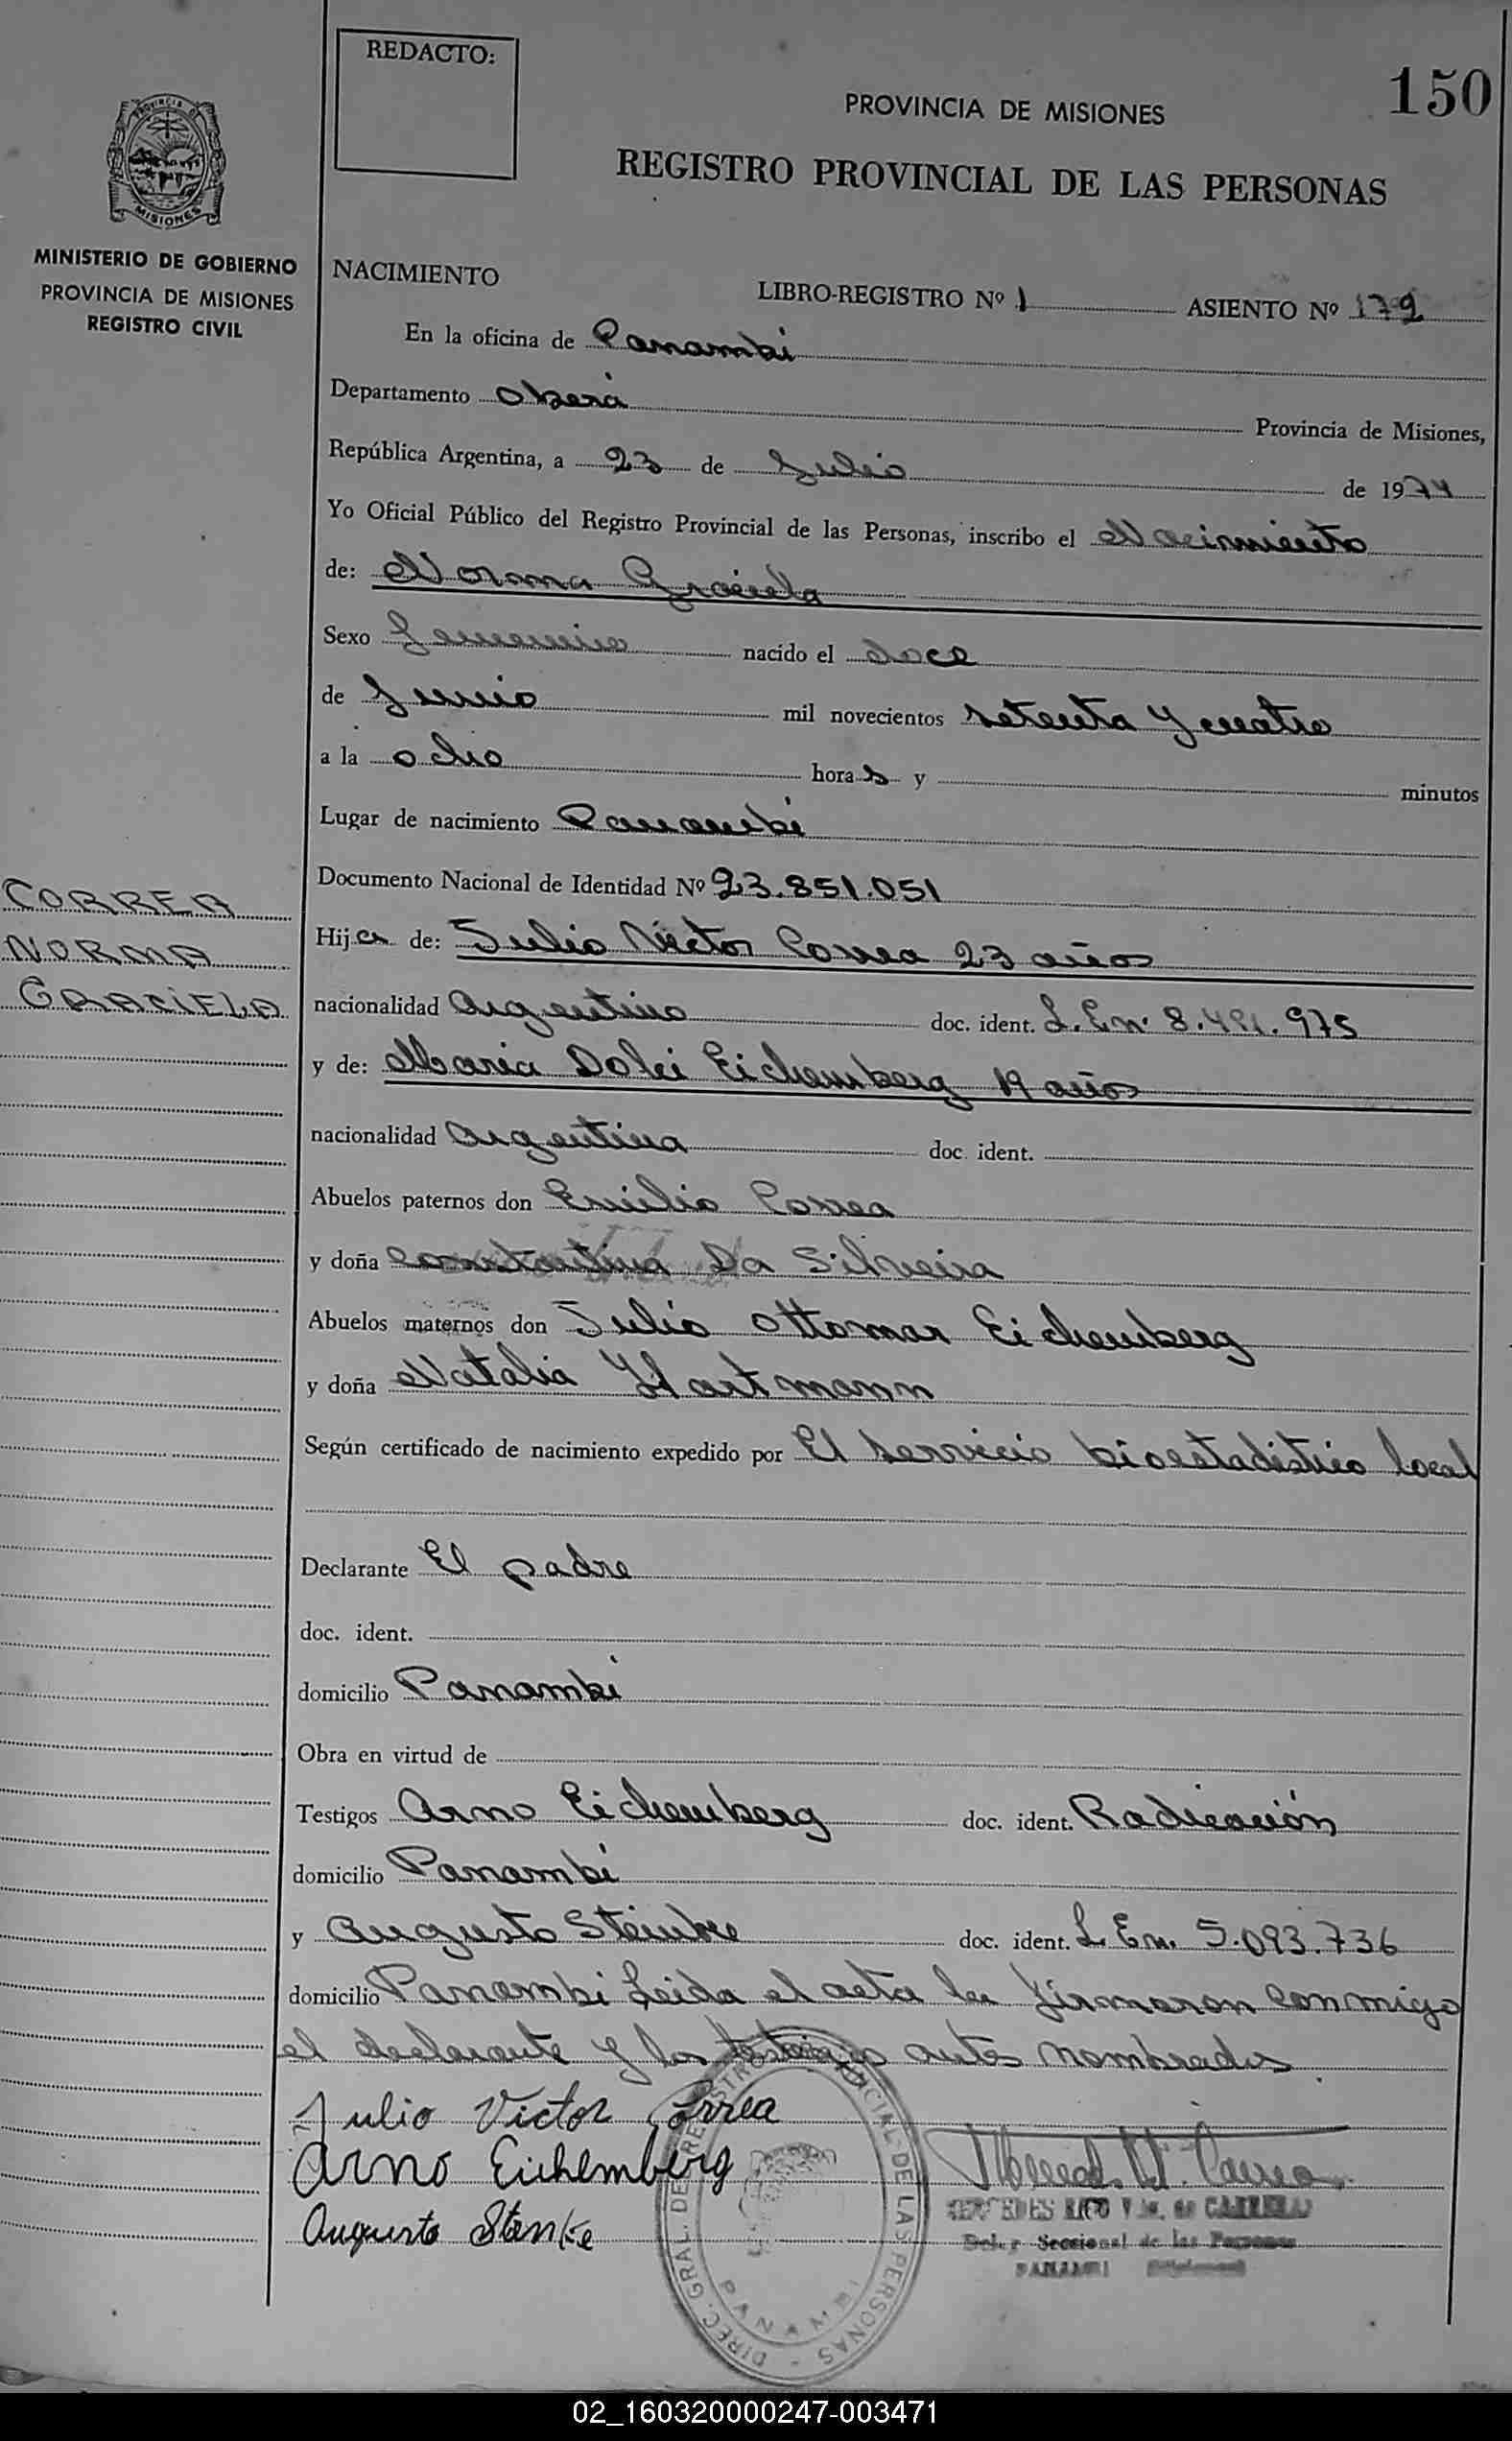 REDACTO:
150
PROVINCIA DE MISIONES
REGISTRO PROVINCIAL DE LAS PERSONAS
PROVINCIA DE
MISIONES
MINISTERIO DE GOBIERNO
PROVINCIA DE MISIONES
REGISTRO CIVIL
NACIMIENTO
LIBRO-REGISTRO Nº 1 ASIENTO Nº 179
En la oficina de Panambí
Departamento Oberá Provincia de Misiones,
República Argentina, a 23 de Julio de 1974
Yo Oficial Público del Registro Provincial de las Personas, inscribo el Nacimiento
de: Norma Graciela
Sexo Femenino nacido el doce
de Junio mil novecientos setenta y cuatro
a la ocho horas y minutos
Lugar de nacimiento Panambí
Documento Nacional de Identidad Nº 23.851.051
CORREA
NORMA
GRACIELA
Hija de: Julio Víctor Correa 23 años
nacionalidad Argentino doc. ident. L.En. 8.491.975
y de: Maria Dolci Eichemberg 19 años
nacionalidad Argentina doc. ident.
Abuelos paternos don Emilio Correa
y doña Constantina Da Silveira
Abuelos maternos don Julio Ottomar Eichemberg
y doña Natalia Hartmann
Según certificado de nacimiento expedido por El servicio bioestadístico local
Declarante El padre
doc. ident.
domicilio Panambí
Obra en virtud de
Testigos Arno Eichemberg doc. ident. Radicación
domicilio Panambí
y Augusto Steinke doc. ident. L.En. 5.093.736
domicilio Panambi Leida el acta la firmaron conmigo
el declarante y los testigos antes nombrados.
Julio Victor Correa
Arno Eichemberg
Augusto Stenke
DIREC. GRAL. DE REGISTRO PROVINCIAL DE LAS PERSONAS
PANAMBI
MERCEDES
Seccional de las Personas
PANAMBI (Misiones)
02_160320000247-003471